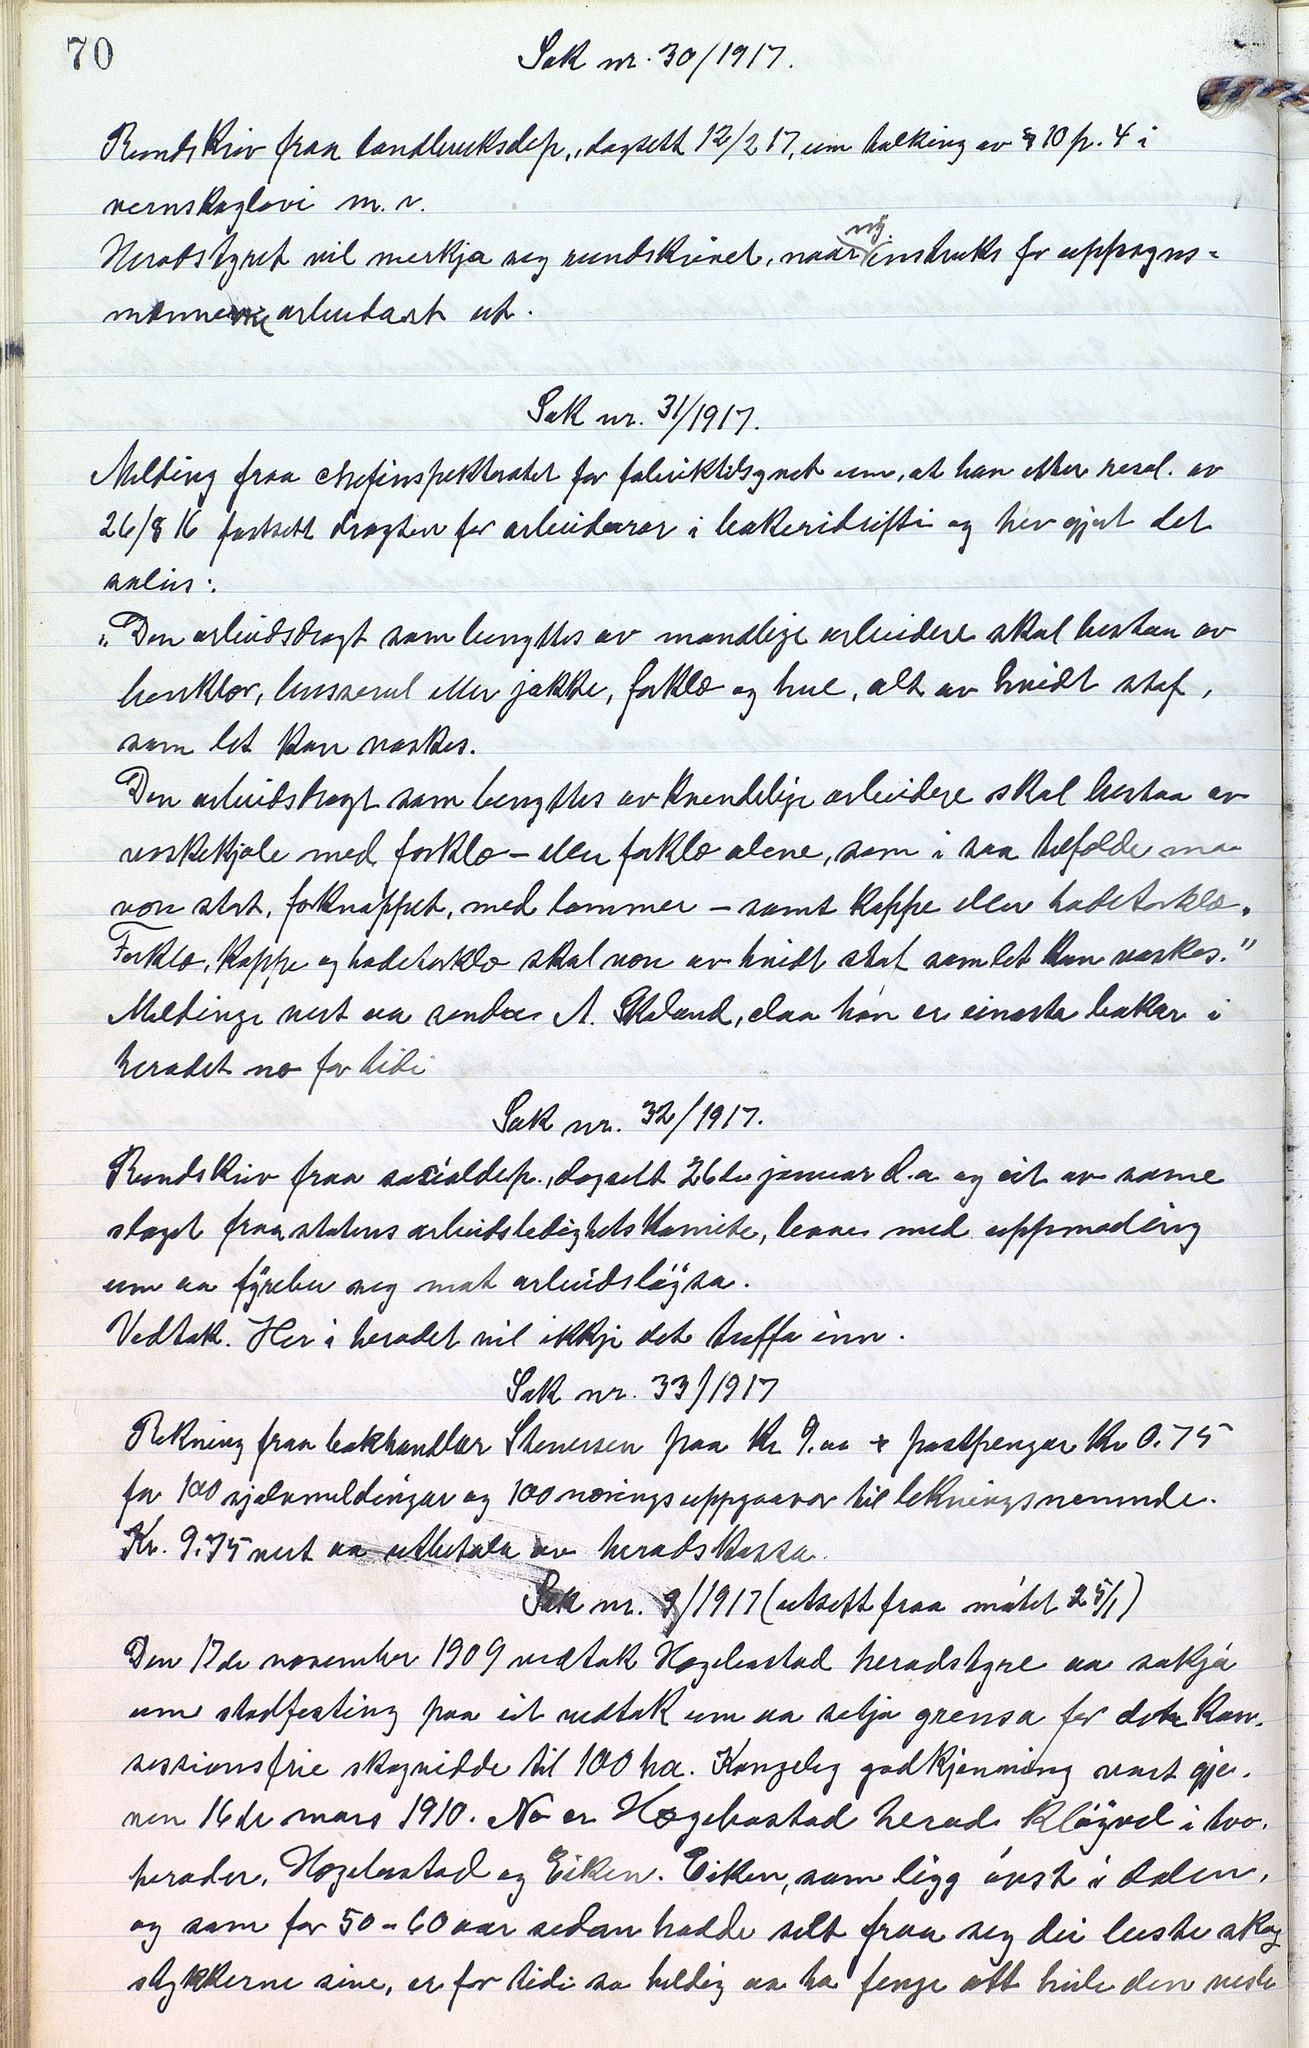 70
Sak nr. 30/1917.
Rundskriv fraa landbruksdep., dagsett 12/2 17, um tolking av § 10 p. 4 i
vernskoglovi m.v.
Heradstyret vil merkja seg rundskrivet, naar ny instruks for uppsyns-
mennerne arbeidast ut.
Sak nr. 31/1917.
Melding fraa chefinspektoratet for fabriktilsynet um, at han etter resol. av
26/8 16 fastsett dragten for arbeidarar i bakeridrifti og hev gjort det
soleis:
"Den arbeidsdragt som benyttes av mandlige arbeidere skal bestaa av
benklær, busserul eller jakke, forklæ og hue, alt av hvidt stof,
som let kan vaskes.
Den arbeidsdragt som benyttes av kvindelige arbeidere skal bestaa av
vaskekjole med forklæ – eller forklæ alene, som i saa tilfælde maa
være stort, forknappet, med lommer – samt kappe eller hodetørklæ.
Forklæ, kappe og hodetørklæ skal være av hvidt stof som let kan vaskes."
Meldingi vert aa senda A. Skeland, daa han er einaste bakar i
heradet no for tidi
Sak nr. 32/1917.
Rundskriv fraa socialdep., dagsett 26de januar d.a. og eit av same
slaget fraa statens arbeidsledighetskomite, baae med uppmoding
um aa fyrebu seg mot arbeidsløysa.
Vedtak. Her i heradet vil ikkje det treffa inn.
Sak nr. 33/1917
Rekning fraa bokhandlar Stenersen paa kr 9.00 + postpengar kr 0.75
for 100 sjølvmeldingar og 100 næringsuppgaavor til likningsnemnde.
Kr. 9.75 vert aa utbetala av heradskassa.
Sak nr. 9/1917 (utsett fraa møtet 25/1)
Den 17de november 1909 vedtok Hægebostad heradstyre aa søkja
um stadfesting paa eit vedtak um aa setja grensa for det kon-
sessionsfrie skogvidde til 100 ha. Kongeleg godkjenning vart gje-
ven 16de mars 1910. No er Hægebostad herad kløyvd i tvo
herader, Hægebostad og Eiken. Eiken, som ligg øvst i dalen,
og som for 50–60 aar sedan hadde selt fraa seg dei beste skog
stykkerne sine, er for tidi so heldig aa ha fenge att heile den vesle